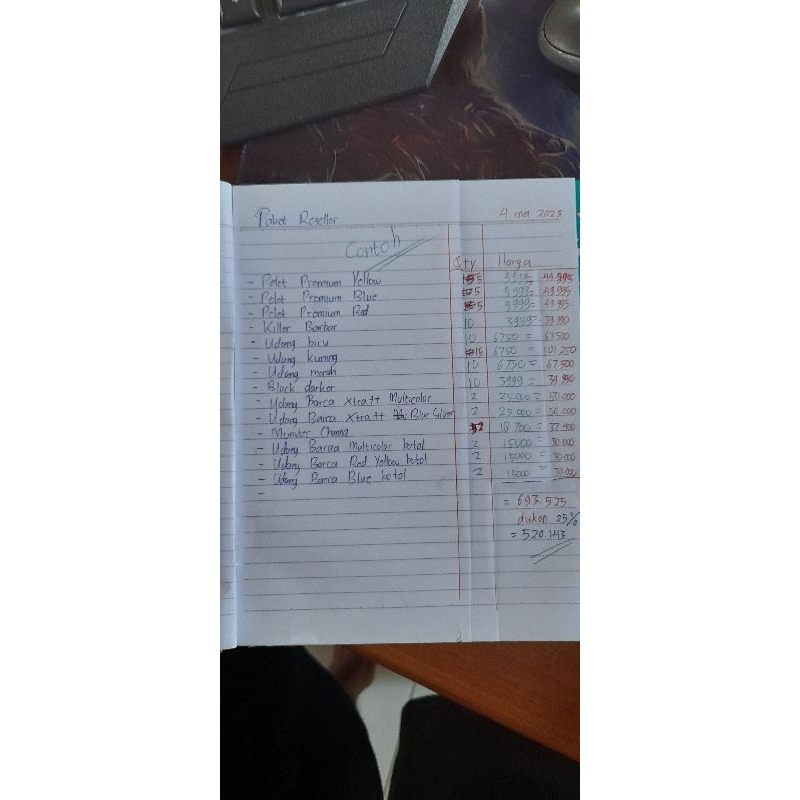 Paket Reseller 4 mei 2023
Contoh
Qty Harga
- Pelet Premium Yellow 5 9999 = 49.995
- Pelet Premium Blue 5 9999 = 49.995
- Pelet Premium Red 5 9999 = 49.995
- Killer Barbar 10 3999 = 39.990
- Udang biru 10 6750 = 67.500
- Udang kuning 15 6750 = 101.250
- Udang merah 10 6750 = 67.500
- Black darker 10 3999 = 39.990
- Udang Barca Xtra++ Multicolor 2 25.000 = 50.000
- Udang Barca Xtra++ Blue Silver 2 25.000 = 50.000
- Monster Channa 2 18.700 = 37.400
- Udang Barca Multicolor botol 2 15000 = 30.000
- Udang Barca Red Yellow botol 2 15000 = 30.000
- Udang Barca Blue botol 2 15000 = 30.000
-
= 693.525
diskon 25%
= 520.143